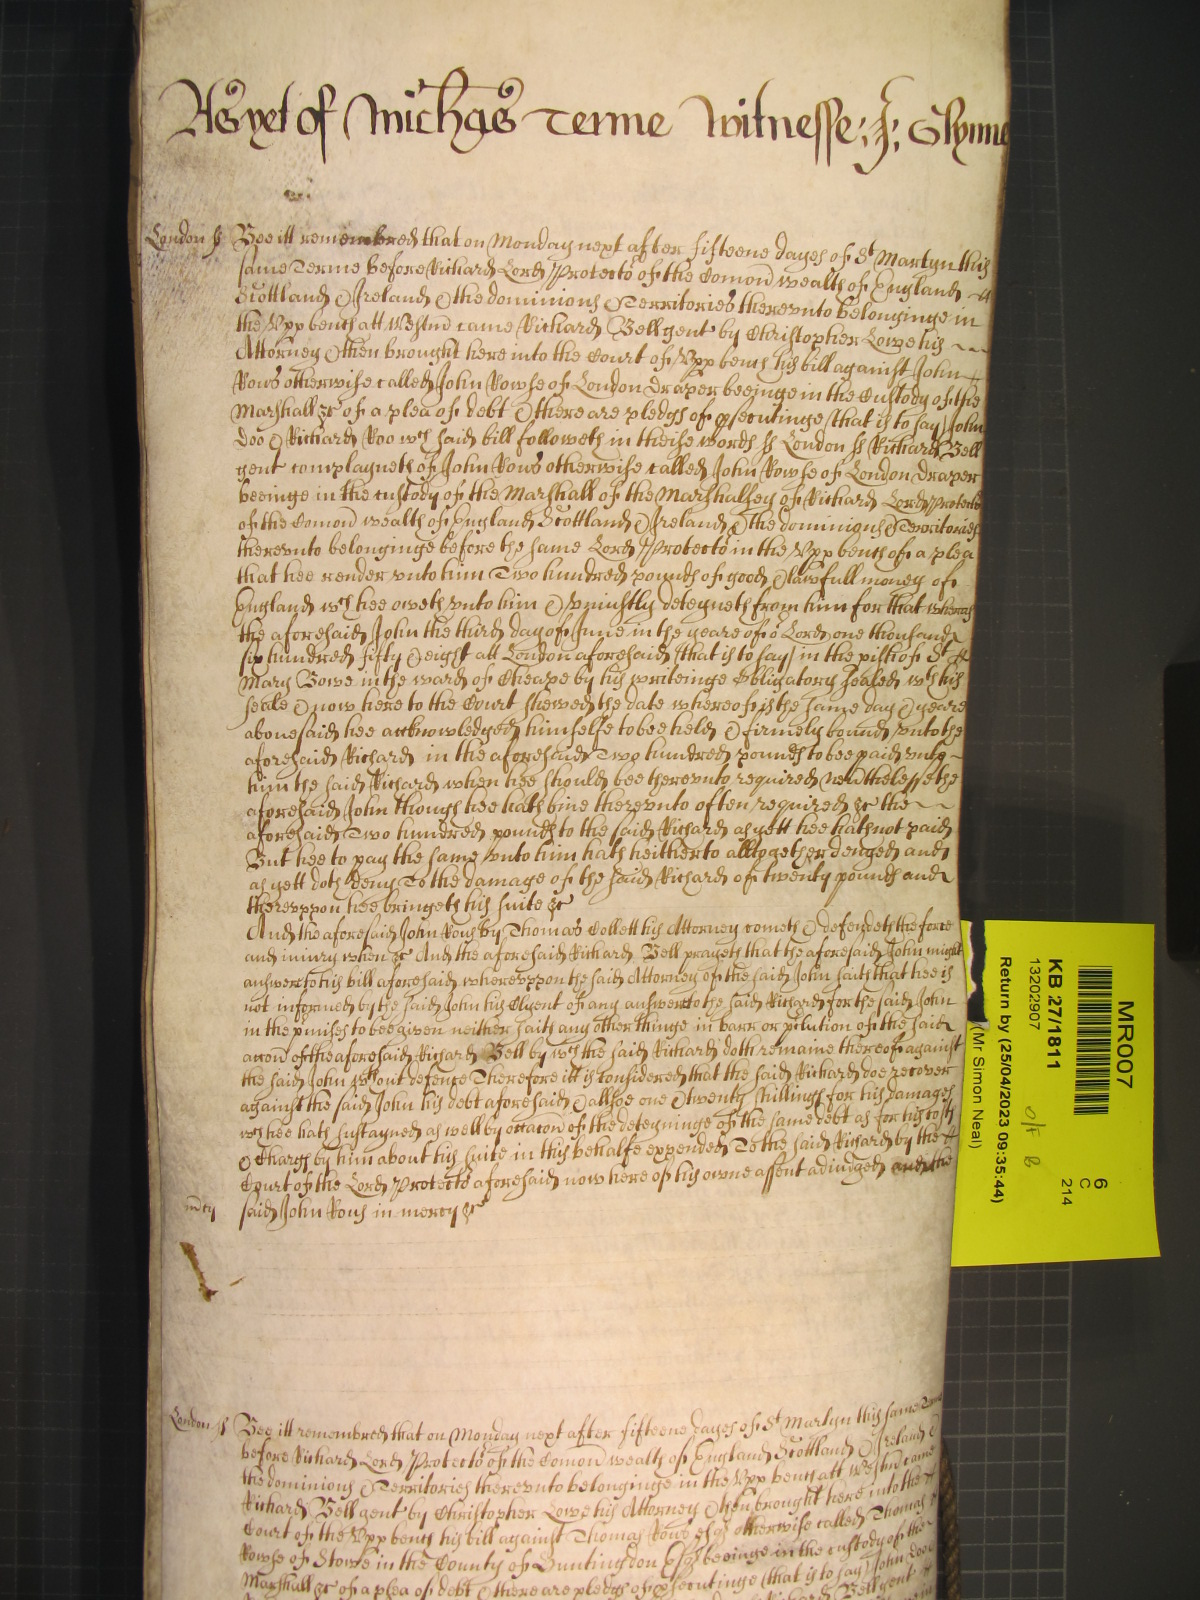 As yet of Michas Terme Witnesse: J: Glynne
London ss Bee itt remembred that on Monday next after fifteene dayes of St Martyn this
same Terme before Richard Lord Protector of the Comon wealth of England
Scottland & Ireland & the dominions & Territories therevnto belonginge in
the Vpp bench att Westm came Richard Bell gent by Christopher Lowe his
Attorney & then brought here into the Court of Vpp bench his bill against John
Rous otherwise called John Rowse of London draper beeinge in the Custody of the
Marshall &c of a plea of debt & there are pledgs of psecutinge (that is to say) John
Doo & Richard Roo wch said bill followeth in theise words ss London ss Richard Bell
gent complayneth of John Rous otherwise called John Rowse of London draper
beeinge in the custody of the Marshall of the Marshalsey of Richard Lord Protector
of the Comon wealth of England Scottland & Ireland & the dominions & Territories
therevnto belonginge before the same Lord Protector in the Vpp bench of a plea
that hee render vnto him Two hundred pounds of good & lawfull money of
England wch hee oweth vnto him & vniustly deteyneth from him for that whereas
the aforesaid John the third day of June in the yeare of or Lord one thousand
six hundred fifty & eight att London aforesaid (that is to say) in the pish of St
Mary Bowe in the ward of Cheape by his writeinge obligatory sealed wth his
seale & now here to the Court shewed the date whereof is the same day & yeare
abovesaid hee acknowledged himselfe to bee held & firmely bound vnto the
aforesaid Richard in the aforesaid Two hundred pounds to bee paid vnto
him the said Richard when hee should bee therevnto required Neuthelesse the
aforesaid John though hee hath bine therevnto often required &c the
aforesaid Two hundred pounds to the said Richard as yett hee hath not paid
But hee to pay the same vnto him hath heitherto alltogether denyed and
as yett doth deny To the damage of the said Richard of twenty pounds and
therevppon hee bringeth his suite &c
And the aforesaid John Rous by Thomas Collett his Attorney cometh & defendeth the force
and iniury when &c And the aforesaid Richard Bell prayeth that the aforesaid John might
answer to his bill aforesaid wherevppon the said Attorney of the said John saith that hee is
not informed by the said John his Clyent of any answere to the said Richard for the said John
in the pmises to bee given neither saith any other thinge in barr or pclution of the said
accon of the aforesaid Richard Bell by wch the said Richard doth remaine thereof against
the said John wthout defence Therefore itt is considered that the said Richard doe recover
against the said John his debt aforesaid & allsoe one & twenty shillings for his damages
wch hee hath sustayned as well by occacon of the deteyninge of the same debt as for his costs
& Chargs by him about his suite in this behalfe expended To the said Richard by the
Court of the Lord Protector aforesaid now here of his owne assent adiudged and the
mcy said John Rous in mercy &c
London ss Bee itt remembred that on Monday next after fifteene dayes of St Martyn this same Terme
before Richard Lord Protector of the Comon wealth of England Scottland & Ireland &
the dominions & Territories therevnto belonginge in the Vpp bench att Westm came
Richard Bell gent by Christopher Lowe his Attorney & then brought here into the
Court of the Vpp bench his bill against Thomas Rous esqr otherwise called Thomas
Rowse of Stowe in the County of Huntingdon Esqr beeinge in the custody of the
Marshall &c of a plea of debt & there are pledgs of psecutinge (that is to say) John Doo
Richard Bell gent
MR007
6
C
214
KB 27/1811 O/F B
13202907
Return by (25/04/2023 09:35:44)
(Mr Simon Neal)